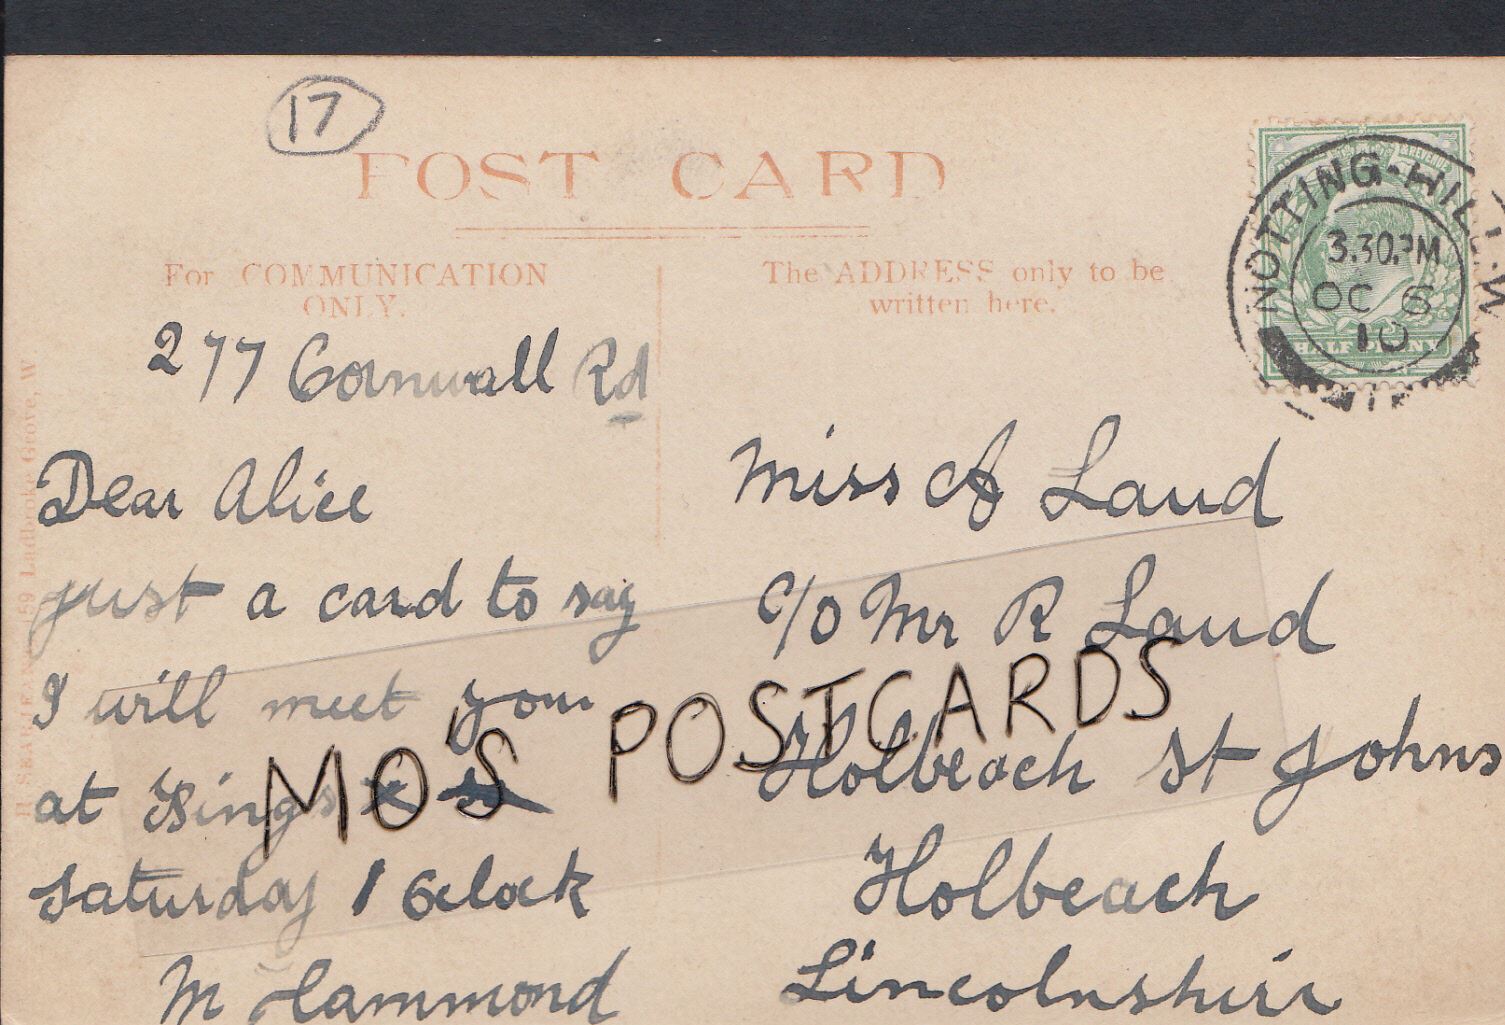 17
POST CARD
For COMMUNICATION
ONLY.
The ADDRESS only to be
written here.
NOTTING-HILL.W
3.30.PM
OC 6
10
HALF PENNY
277 Cornwall Rd
Dear Alice
just a card to say
I will meet you
at Kings X
Saturday 1 Oclock
M Hammond
Miss A Laud
C/o Mr R Laud
Holbeach St Johns
Holbeach
Lincolnshire
MO'S POSTCARDS
159 Ladbroke Grove, W